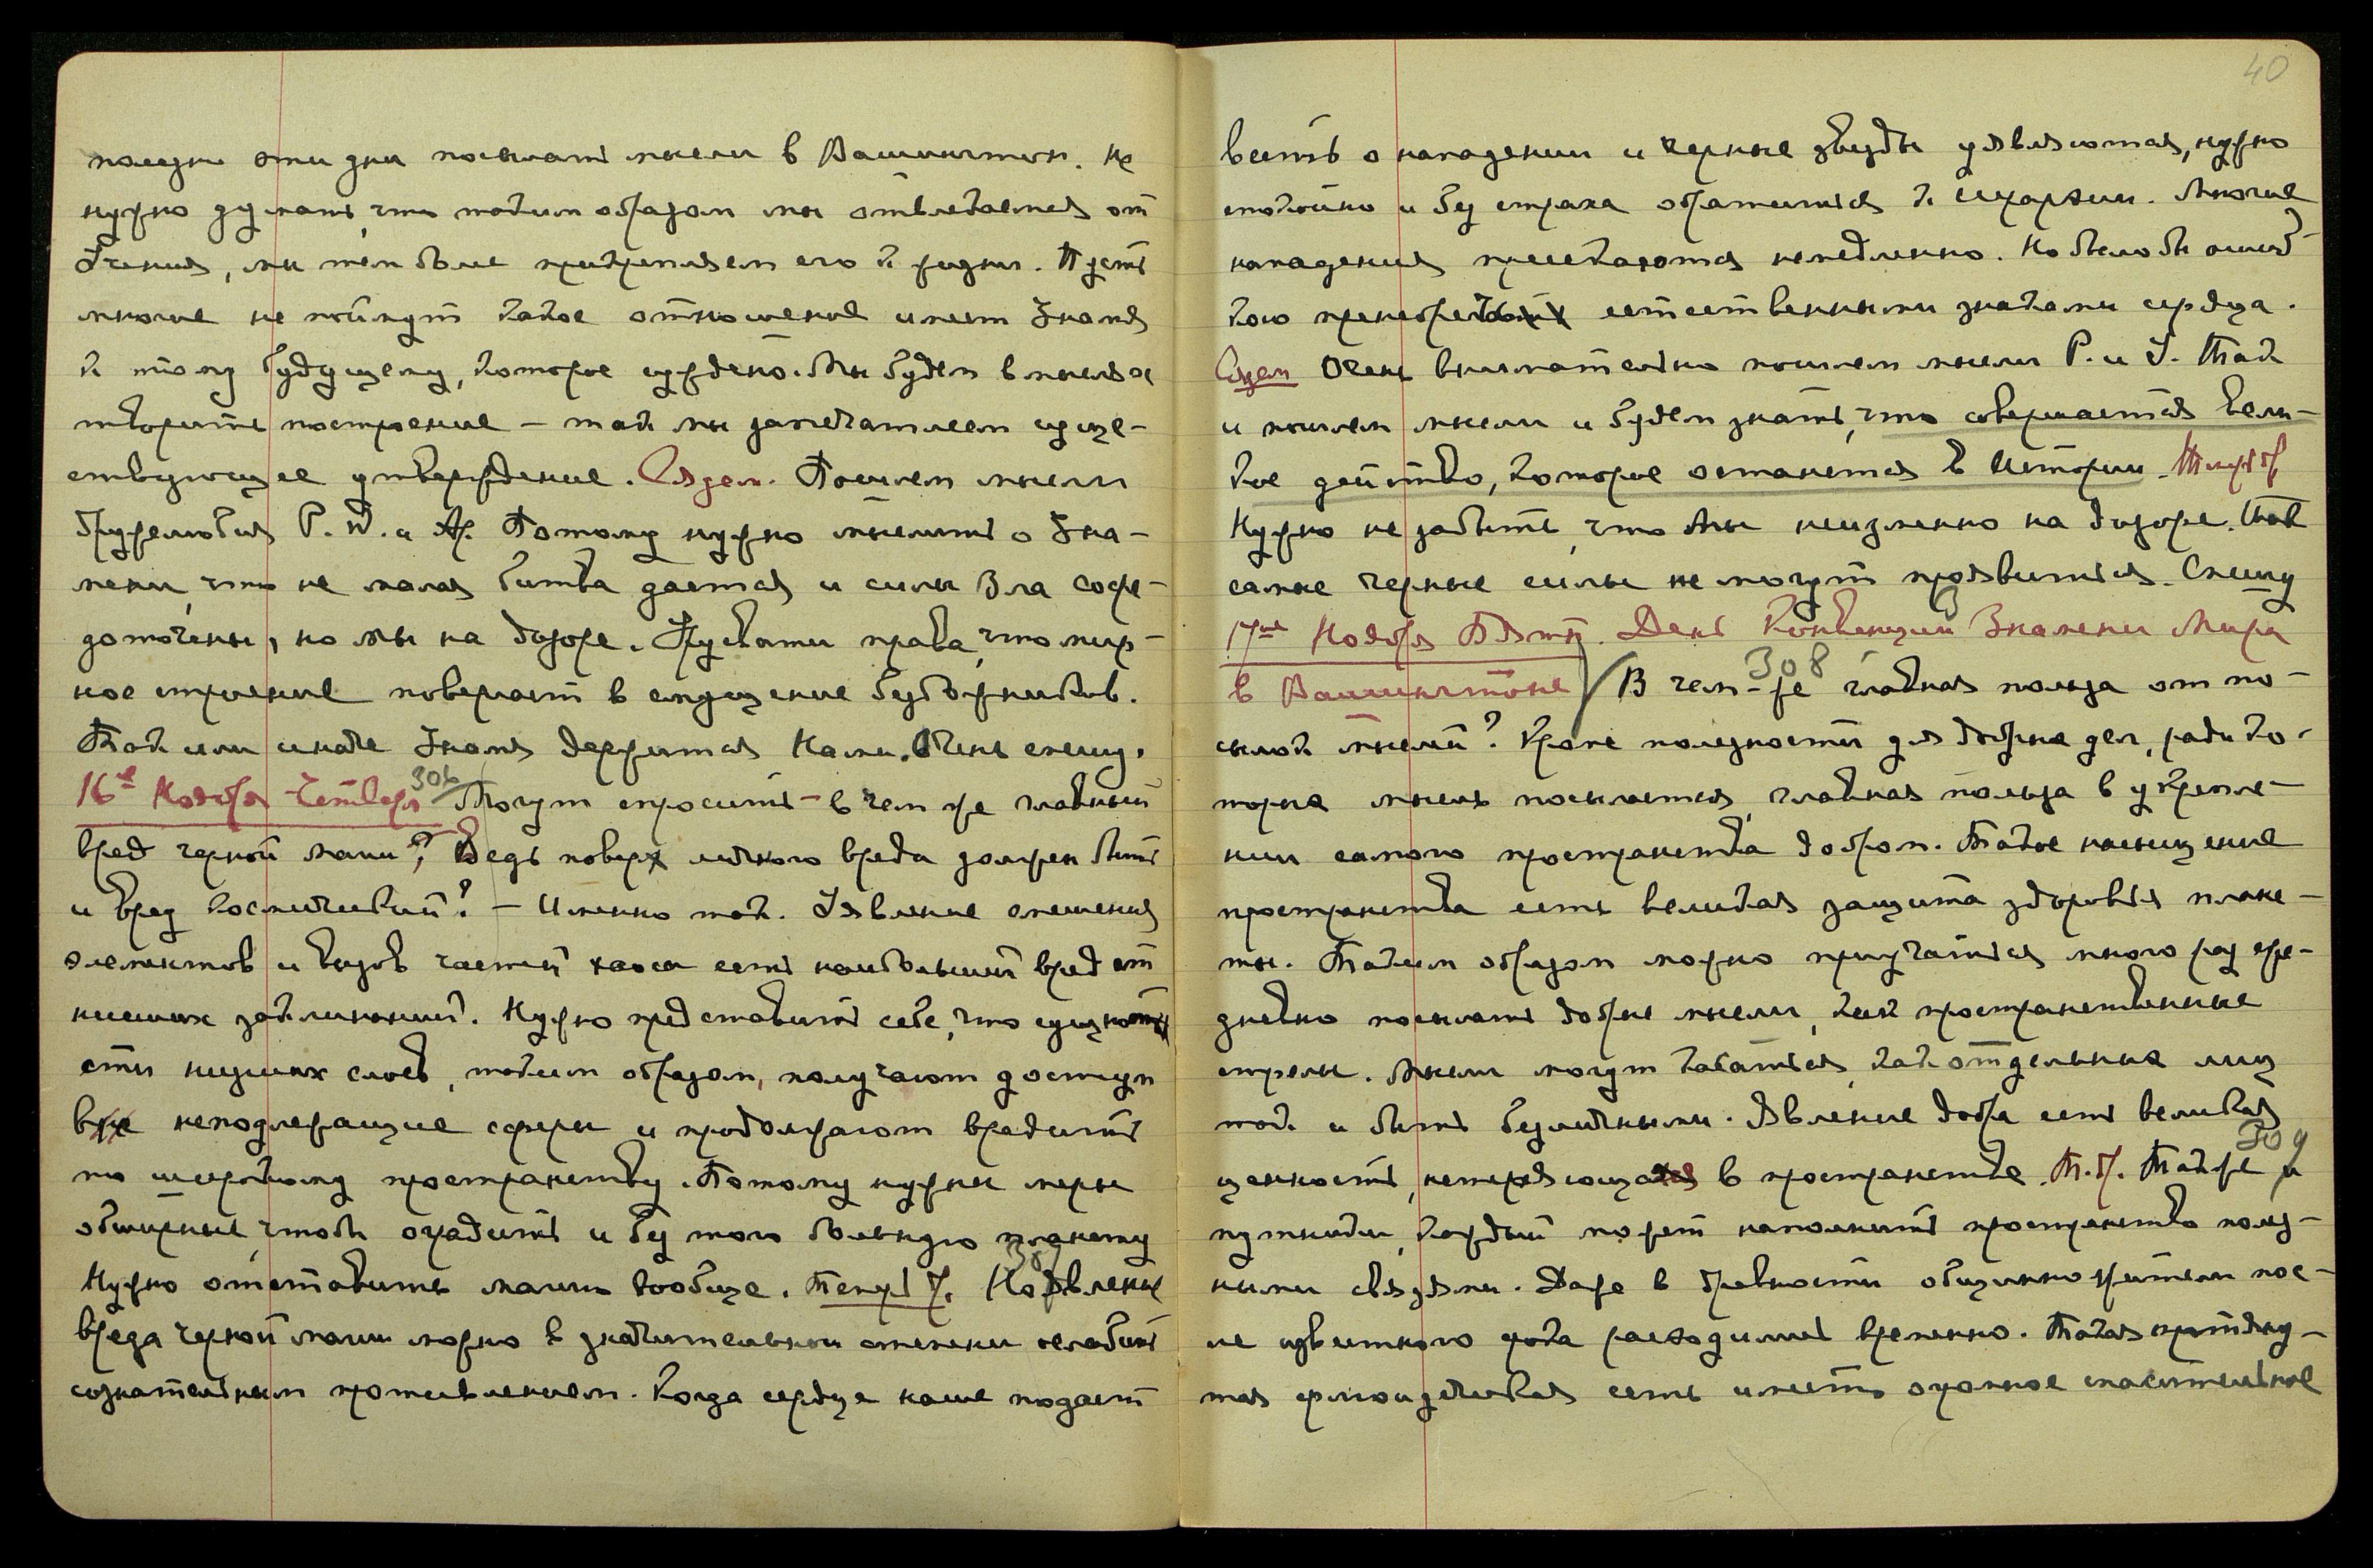 полезно эти дни посылать мысли в Вашингтон. Не
нужно думать, что таким образом мы отвлекаемся от
Учения, мы тем более прикрепляем его к жизни. Пусть
многие не поймут какое отношение имеет Знамя
к тому будущему, которое суждено. Мы будем в мыслях
творить построение – так мы запечатлеем сущес-
твующее утверждение. Сядем. Пошлем мысли
дружелюбия Р. и Потому нужно мыслить о Зна-
мени, что не малая битва дается и силы Зла сосре-
доточены, но мы на дозоре. Друкпаши права, что мир-
ное строение повергает в смущение безбожников.
Так или иначе Знамя держится Нами. Очень спешу.
16е Ноября Четверг 306 Могут спросить – в чем же главный
вред черной магии? Ведь поверх личного вреда должен быть
и вред космический? – Именно так. Явление смешения
элементов и вызов частей хаоса есть наибольший вред от
низших заклинаний. Нужно представить себе, что сущно
сти низших слоев, таким образом, получают доступ
в неподлежащие сферы и продолжают вредить
по широкому пространству. Потому нужны меры
обширные, чтобы оградить и без того больную планету
Нужно отставить магию вообще. 307 Но явление
вреда черной магии можно в значительной степени ослабить
сознательным противлением. Когда сердце наше подает
40
весть о нападении и черные звезды уявляются, нужно
спокойно и без страха обратиться к Иерархии. Многие
нападения пресекаются немедленно. Но было бы ошиб-
кою пренебречь естественными знаками сердца.
Сядем Очень внимательно пошлем мысли Р. и У. Так
и пошлем мысли и будем знать, что совершается Вели-
кое действо, которое останется в Истории.
Нужно не забыть, что Мы неизменно на дозоре. Так
самые черные силы не могут проявиться. Спешу
17ое Ноября Пятн. День Конвенции Знамени Мира
в Вашингтоне 308 В чем-же главная польза от по-
сылок мыслей? Кроме полезности для добрых дел, ради ко-
торых мысль посылается, главная польза в укрепле-
нии самого пространства добром. Такое насыщение
пространства есть великая защита здоровья плане-
ты. Таким образом можно приучаться много раз еже-
дневно посылать добрые мысли, как пространственные
стрелы. Мысли могут касаться, как отдельных лиц
так и быть безличными. Явление добра есть великая
ценность, нетеряющаяся в пространстве. 309 Также и
путники, каждый может наполнить пространство полез-
ными связями. Даже в древности общинножители пос-
ле известного срока расходились временно. Такая протяну-
тая флюидическая сеть имеет огромное спасительное